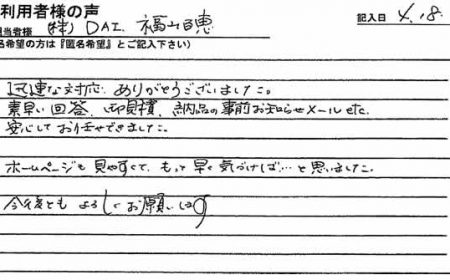 利用者様の声
記入日 4.18
担当者様 (株)DAI. 福山百恵
名希望の方は『匿名希望』とご記入下さい)
迅速な対応、ありがとうございました。
素早い回答、御見積、納品の事前お知らせメール etc.
安心してお任せできました。
ホームページも見やすくて、もっと早く気づけば…と思いました。
今後とも よろしくお願いします